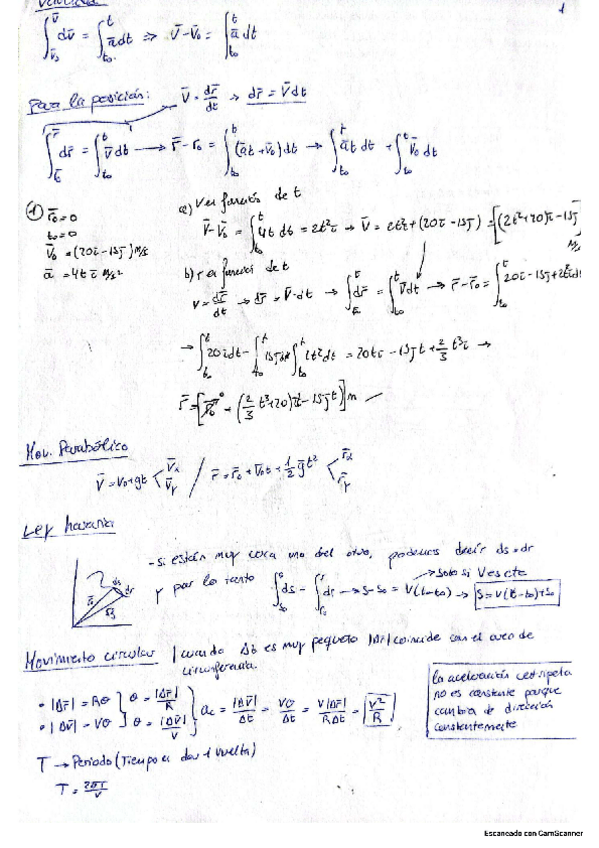 1
∫_{v̄₀}^{v̄} dv̄ = ∫_{t₀}^{t} ā dt ⇒ v̄ - v̄₀ = ∫_{t₀}^{t} ā dt
Para la posición: v̄ = dr̄/dt → dr̄ = v̄ dt
∫ dr̄ = ∫_{t₀}^{t} v̄ dt → r̄ - r₀ = ∫_{t₀}^{t} (āt + v̄₀) dt → ∫_{t₀}^{t} āt dt + ∫_{t₀}^{t} v̄₀ dt
① r̄₀ = 0
t₀ = 0
v̄₀ = (20i - 15j) m/s
ā = 4t i m/s²
a) v en función de t
v̄ - v̄₀ = ∫_{t₀}^{t} 4t dt = 2t² i → v̄ = 2t² i + (20i - 15j) = [(2t² + 20) i - 15j] m/s
b) r en función de t
v = dr̄/dt → dr̄ = v̄ · dt → ∫ dr̄ = ∫_{t₀}^{t} v̄ dt → r̄ - r̄₀ = ∫_{t₀}^{t} 20i - 15j + 2t² i dt
→ ∫_{t₀}^{t} 20i dt - ∫_{t₀}^{t} 15j dt ∫_{t₀}^{t} 2t² dt = 20t i - 15j t + 2/3 t³ i →
r̄ = [r̄₀ + (2/3 t³ + 20) i - 15j t] m
Mov. Parabólico
v̄ = v₀ + gt < v̄x v̄y / r̄ = r̄₀ + v̄₀t + 1/2 ḡt² < r̄x r̄y
Ley horaria
- si están muy cerca uno del otro, podemos decir ds = dr
y por lo tanto ∫_{s₀}^{s} ds - ∫ dr → s - s₀ = v(t - t₀) → s = v(t - t₀) + s₀
→ solo si V es cte
ds
dr
Movimiento circular / cuando Δt es muy pequeño |Δr̄| coincide con el arco de
circunferencia.
• |Δr̄| = Rθ } θ = |Δr̄|/R
• |Δv̄| = Vθ } θ = |Δv̄|/V } ac = |Δv̄|/Δt = Vθ/Δt = V|Δr̄|/RΔt = V²/R
la aceleración centripeta
no es constante porque
cambia de dirección
constantemente
T → Periodo (Tiempo en dar 1 vuelta)
T = 2πr/v
Escaneado con CamScanner